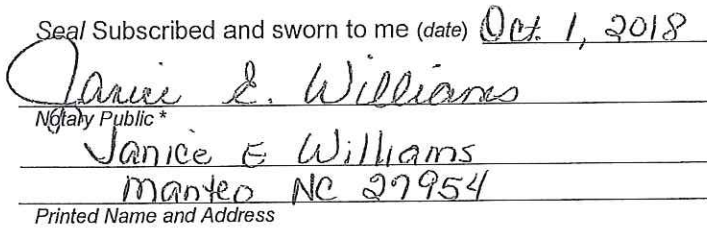 Seal Subscribed and sworn to me (date) Oct. 1, 2018
Janice E. Williams
Notary Public *
Janice E Williams
Manteo NC 27954
Printed Name and Address